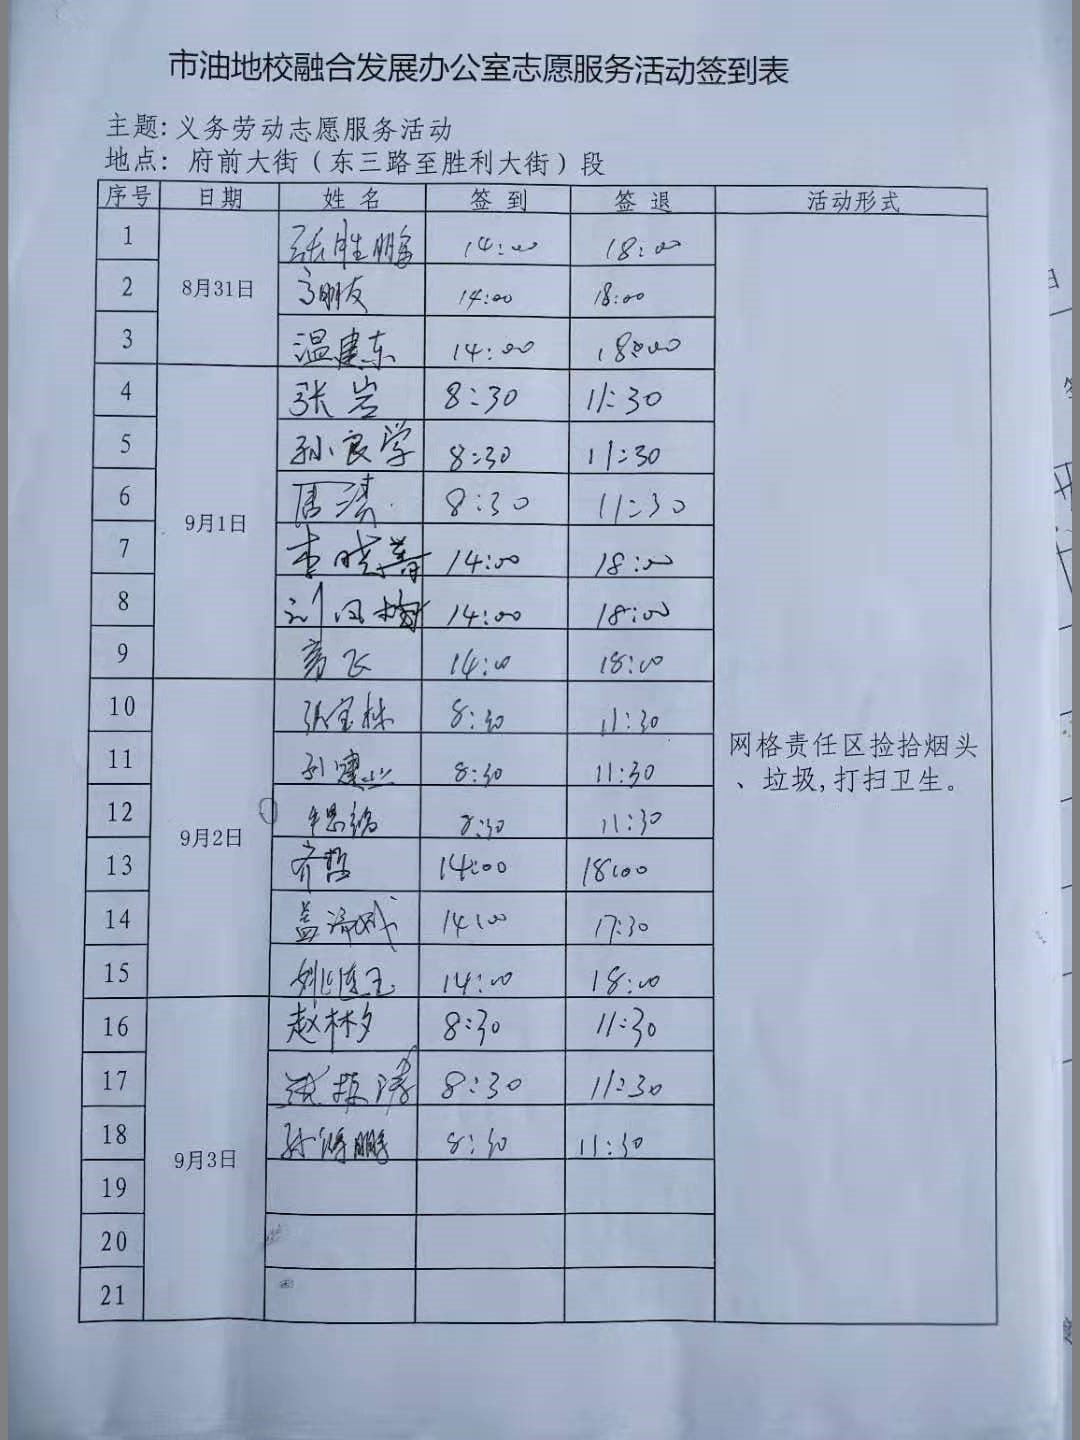 市油地校融合发展办公室志愿服务活动签到表
主题: 义务劳动志愿服务活动
地点: 府前大街（东三路至胜利大街）段
序号 日期 姓名 签到 签退 活动形式
1 8月31日 张胜鹏 14:00 18:00
2 高朋友 14:00 18:00
3 温建东 14:00 18:00
4 9月1日 张岩 8:30 11:30
5 孙良学 8:30 11:30
6 周涛 8:30 11:30
7 李晓 14:00 18:00
8 刘风 14:00 18:00
9 高飞 14:00 18:00
10 9月2日 张宝栋 8:30 11:30
11 8:30 11:30
12 8:30 11:30
13 齐哲 14:00 18:00
14 盖 14:00 17:30
15 姚连玉 14:00 18:00
16 9月3日 赵林夕 8:30 11:30
17 张振涛 8:30 11:30
18 孙海鹏 8:30 11:30
19
20
21
网格责任区捡拾烟头
、垃圾,打扫卫生。